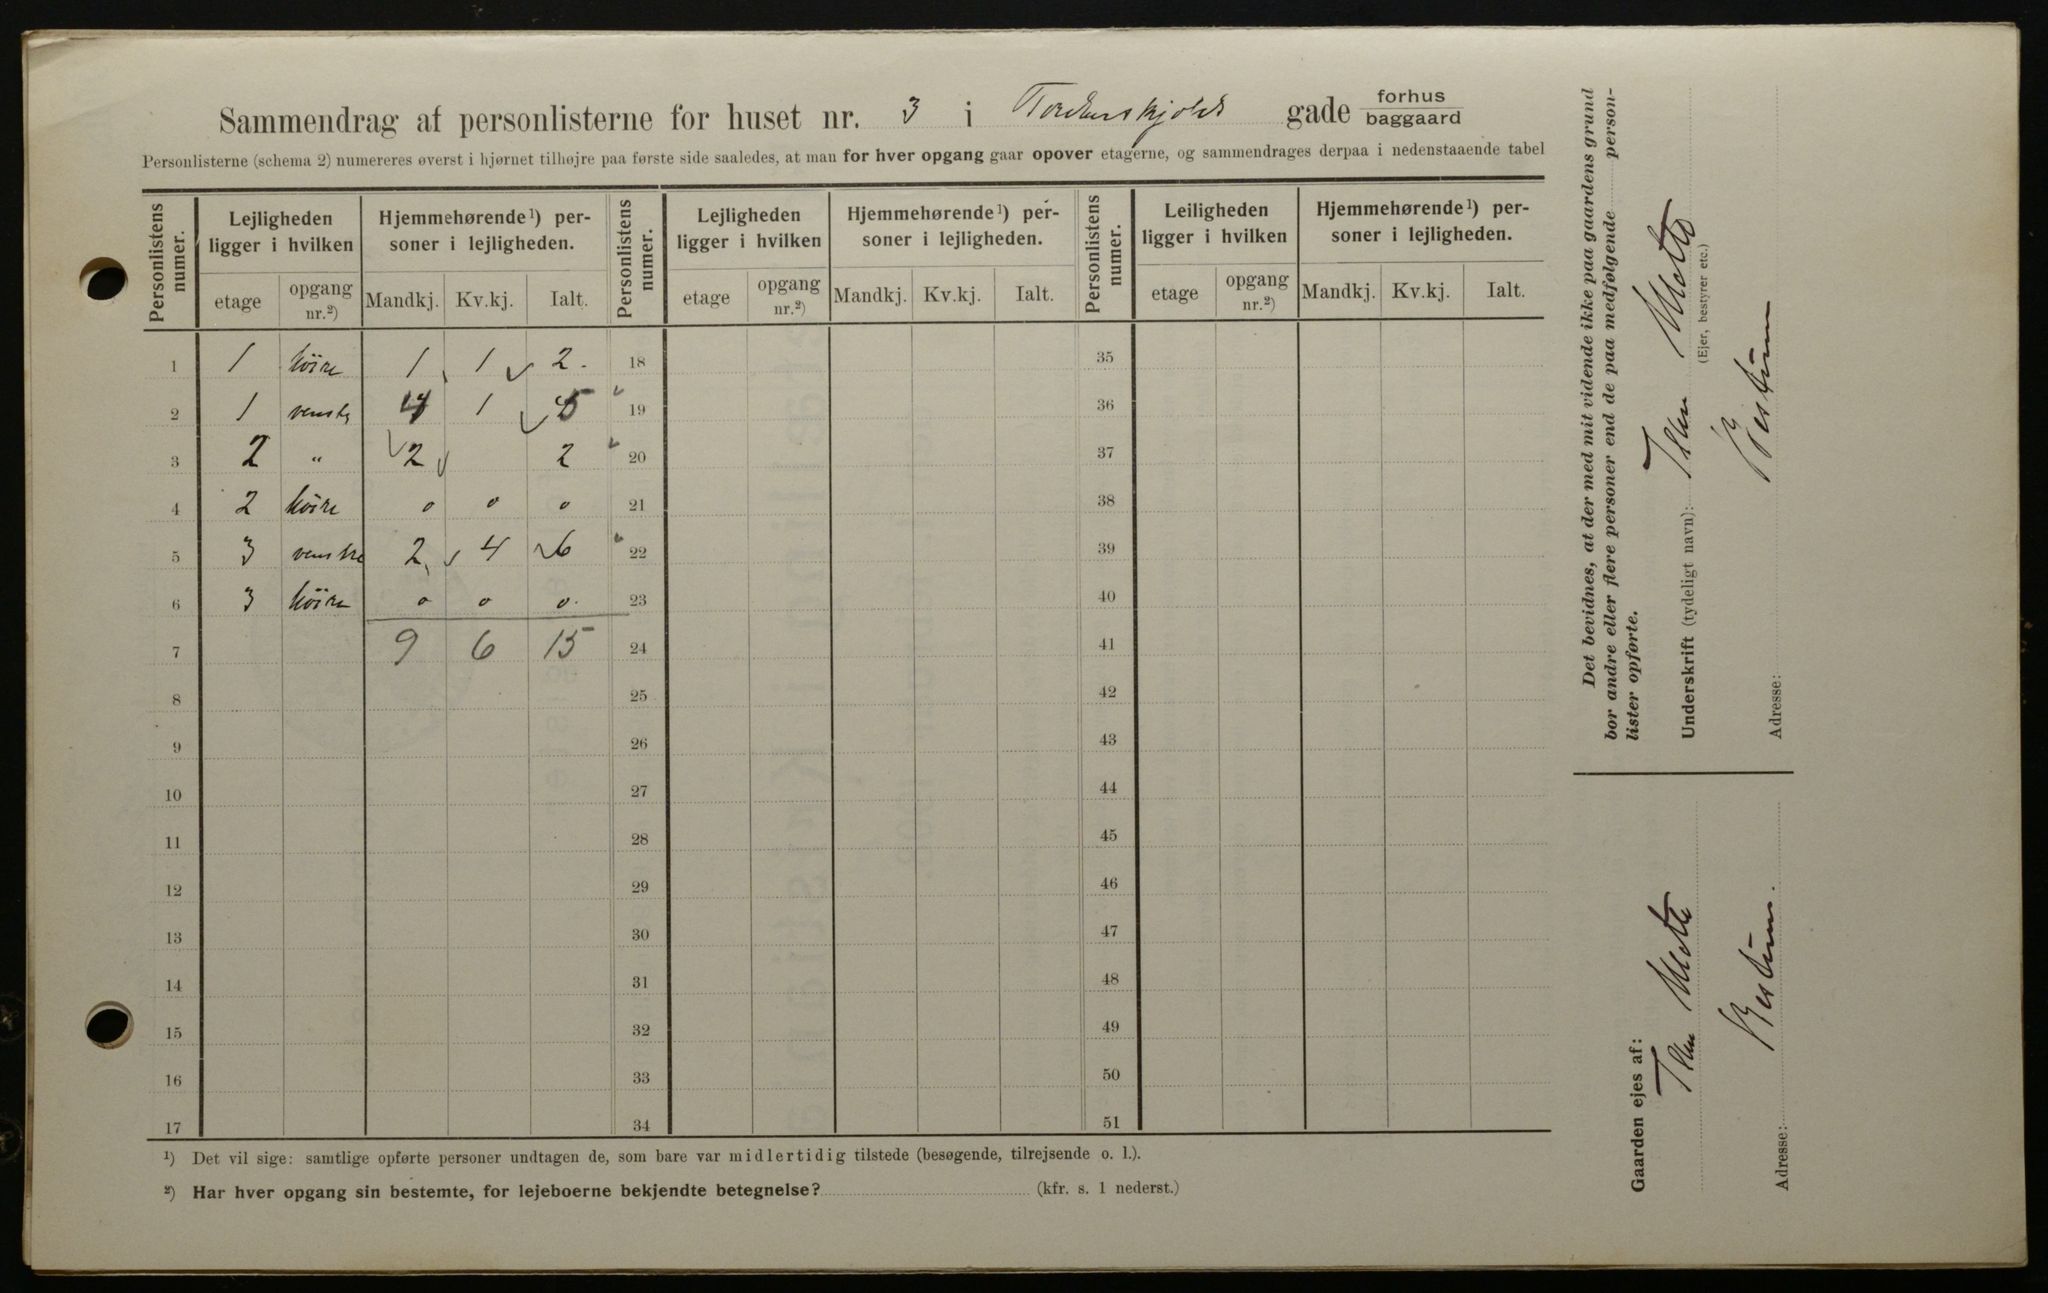 Sammendrag af personlisterne for huset nr. 3 i Tordenskjolds gade forhus baggaard
Personlisterne (schema 2) numereres øverst i hjørnet tilhøjre paa første side saaledes, at man for hver opgang gaar opover etagerne, og sammendrages derpaa i nedenstaaende tabel
Personlistens numer. Lejligheden ligger i hvilken Hjemmehørende¹) personer i lejligheden. Personlistens numer. Lejligheden ligger i hvilken Hjemmehørende¹) personer i lejligheden. Personlistens numer. Leiligheden ligger i hvilken Hjemmehørende¹) personer i lejligheden.
etage opgang nr.²) Mandkj. Kv.kj. Ialt. etage opgang nr.²) Mandkj. Kv.kj. Ialt. etage opgang nr.²) Mandkj. Kv.kj. Ialt.
1 1 höire 1 1 2 18 35
2 1 venstr 4 1 5 19 36
3 2 „ 2 2 20 37
4 2 höire 0 0 0 21 38
5 3 venstre 2 4 6 22 39
6 3 höire 0 0 0 23 40
7 9 6 15 24 41
8 25 42
9 26 43
10 27 44
11 28 45
12 29 46
13 30 47
14 31 48
15 32 49
16 33 50
17 34 51
¹) Det vil sige: samtlige opførte personer undtagen de, som bare var midlertidig tilstede (besøgende, tilrejsende o. l.).
²) Har hver opgang sin bestemte, for lejeboerne bekjendte betegnelse? (kfr. s. 1 nederst.)
Det bevidnes, at der med mit vidende ikke paa gaardens grund
bor andre eller flere personer end de paa medfølgende person-
lister opførte.
Underskrift (tydeligt navn):
(Ejer, bestyrer etc.)
Adresse:
Gaarden ejes af:
Adresse: